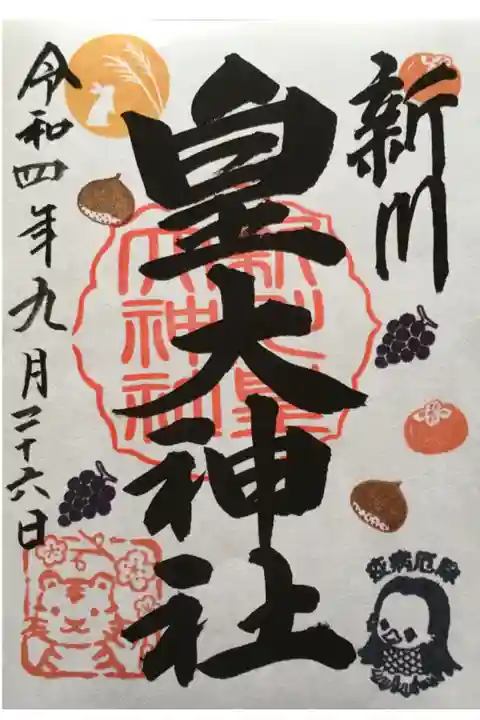 新川
皇大神社
新川皇
大神社
令和四年九月二十六日
疫病厄除